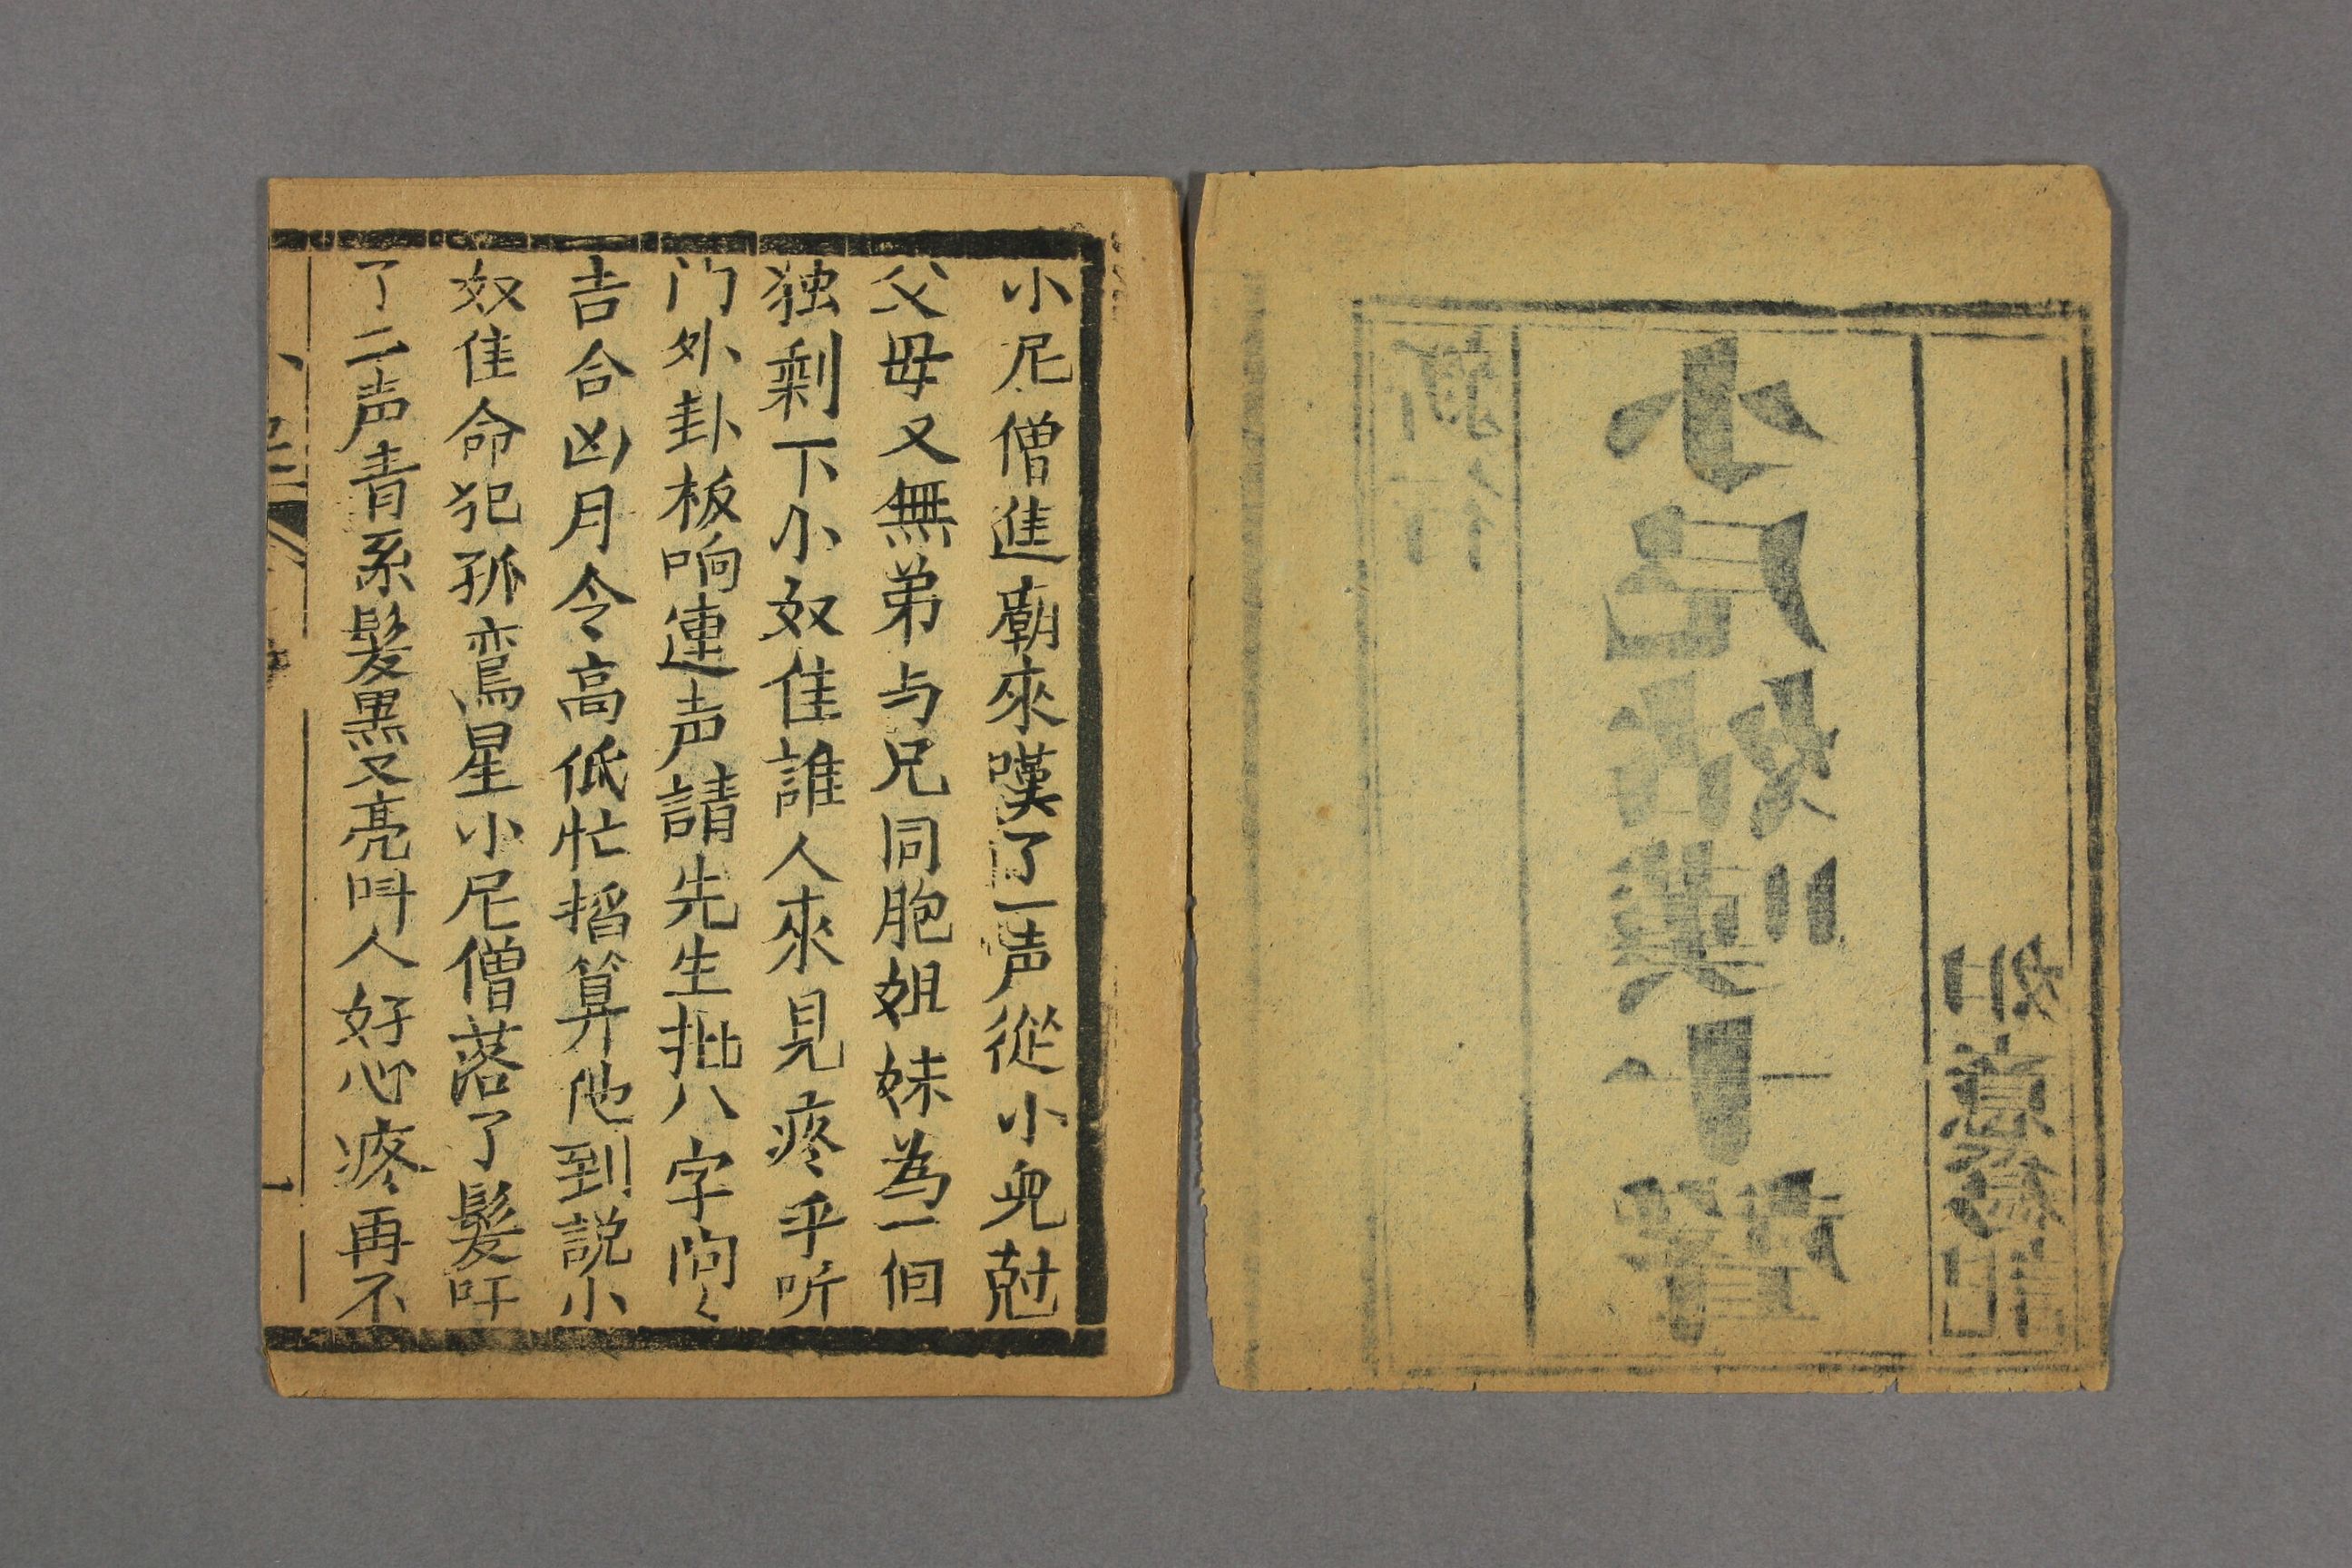 新行
小尼姑嘆十聲
小尼僧進廟來嘆了一声從小兒尅
父母又無弟与兄同胞姐妹為一佪
独剩下小奴隹誰人來見疼乎听
门外卦板响連声請先生批八字问々
吉合凶月令高低忙掐算他到説小
奴隹命犯孤鸾星小尼僧落了髮吁
了二声青系髮黒又亮叫人好心疼再不